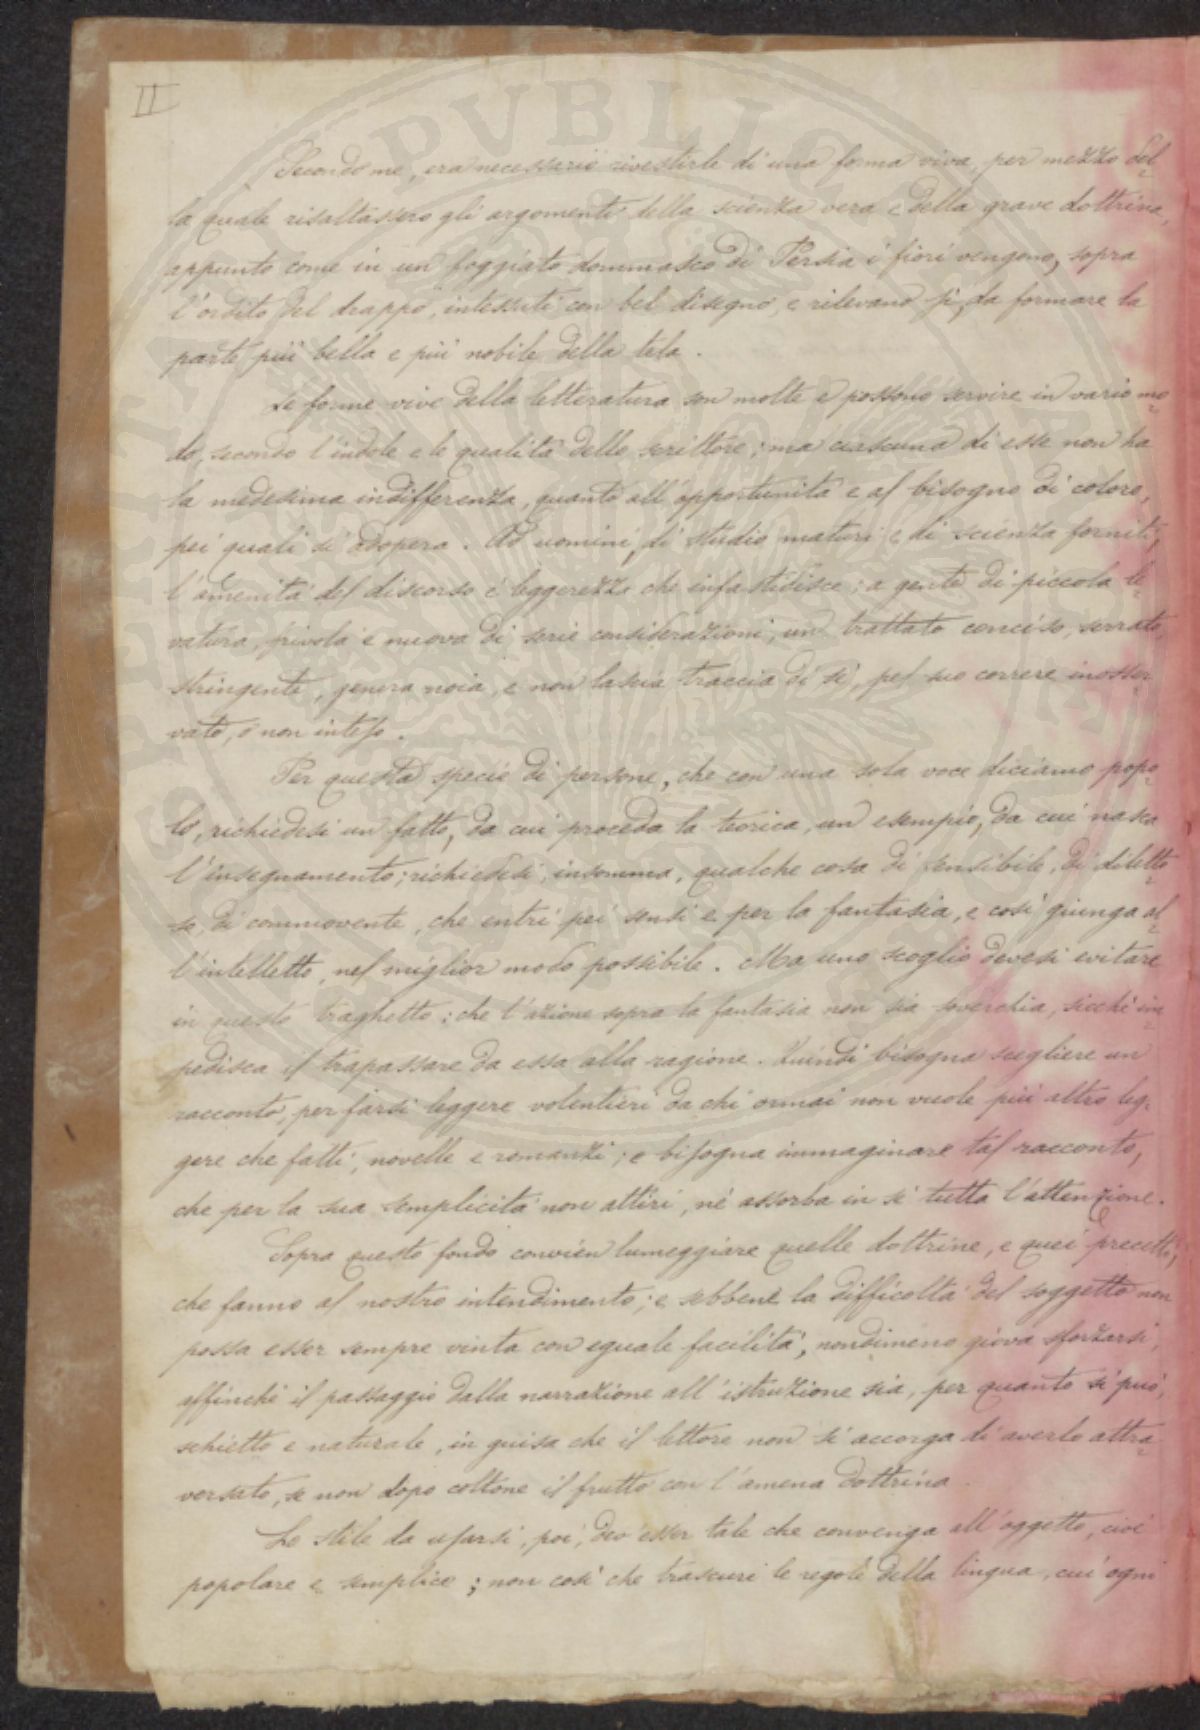 II
Secondo me, era necessario rivestirle di una forma viva, per mezzo del=
la quale risaltassero gli argomenti della scienza vera e della grave dottrina,
appunto come in un foggiato dommasco di Persia i fiori vengono, sopra
l'ordito del drappo, intessuti con bel disegno, e rilevano sì, da formare la
parte più bella e più nobile della tela.
Le forme vive della letteratura son molte e possono servire in vario mo=
do, secondo l'indole e le qualità dello scrittore; ma ciascuna di esse non ha
la medesima indifferenza, quanto all'opportunità e al bisogno di coloro,
pei quali si adopera. Ad uomini, di studio maturi e di scienza forniti,
l'amenità del discorso è leggerezza che infastidisce; a gente di piccola le=
vatura, frivola e nuova di serie considerazioni, un trattato conciso, serrato,
stringente, genera noia, e non lascia traccia di sè, pel suo correre inosser=
vato, o non inteso.
Per questa specie di persone, che con una sola voce diciamo popo=
lo, richiedesi un fatto, da cui proceda la teorica, un esempio, da cui nasca
l'insegnamento; richiedesi, insomma, qualche cosa di sensibile, di diletto=
so, di commovente, che entri pei sensi e per la fantasia, e così giunga al=
l'intelletto, nel miglior modo possibile. Ma uno scoglio devesi evitare
in questo traghetto: che l'azione sopra la fantasia non sia soverchia, sicchè im=
pedisca il trapassare da essa alla ragione. Quindi bisogna scegliere un
racconto, per farsi leggere volentieri da chi ormai non vuole più altro leg=
gere che fatti, novelle e romanzi; e bisogna immaginare tal racconto,
che per la sua semplicità non attiri, nè assorba in sè tutta l'attenzione.
Sopra questo fondo convien lumeggiare quelle dottrine, e quei precetti,
che fanno al nostro intendimento; e sebbene la difficoltà del soggetto non
possa esser sempre vinta con eguale facilità, nondimeno giova sforzarsi,
affinchè il passaggio dalla narrazione all'istruzione sia, per quanto si può,
schietto e naturale, in guisa che il lettore non si accorga di averlo attra=
versato, se non dopo coltone il frutto con l'amena dottrina.
Lo stile da usarsi, poi, dev'esser tale che convenga all'oggetto, cioè
popolare e semplice; non così che trascuri le regole della lingua, cui ogni
BIBLIOTHECA PVBLICA